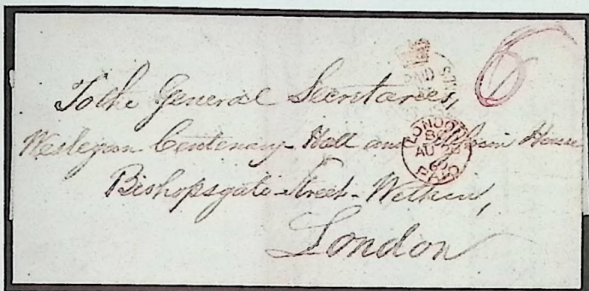 6
To the General Secretaries,
Wesleyan Centenary Hall and Mission House
Bishopsgate Street Within,
London
LONDON
AU
PAID